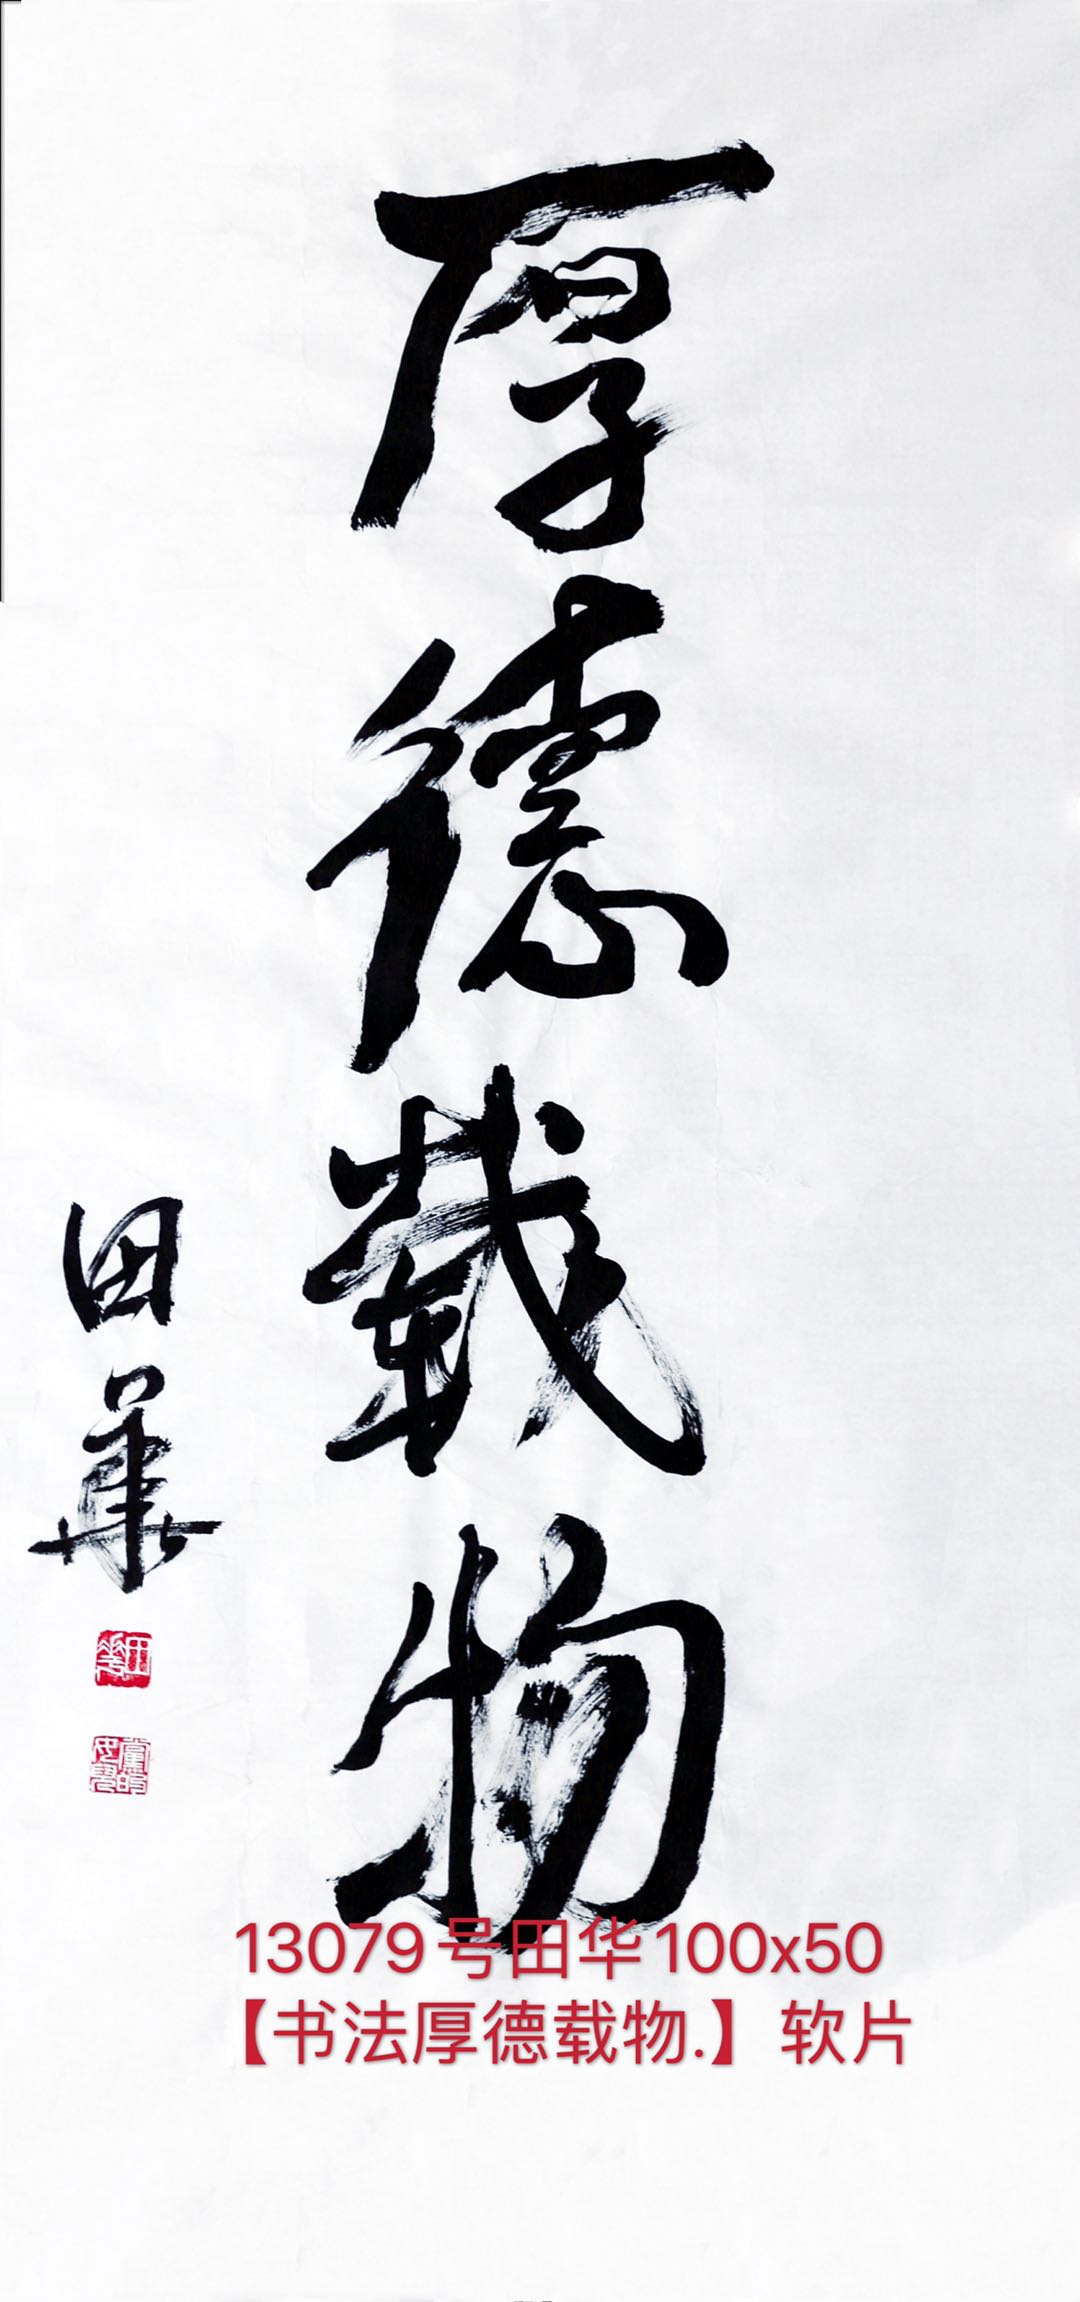 厚德载物
田華
田華
党的女儿
13079号田华100x50
【书法厚德载物.】软片